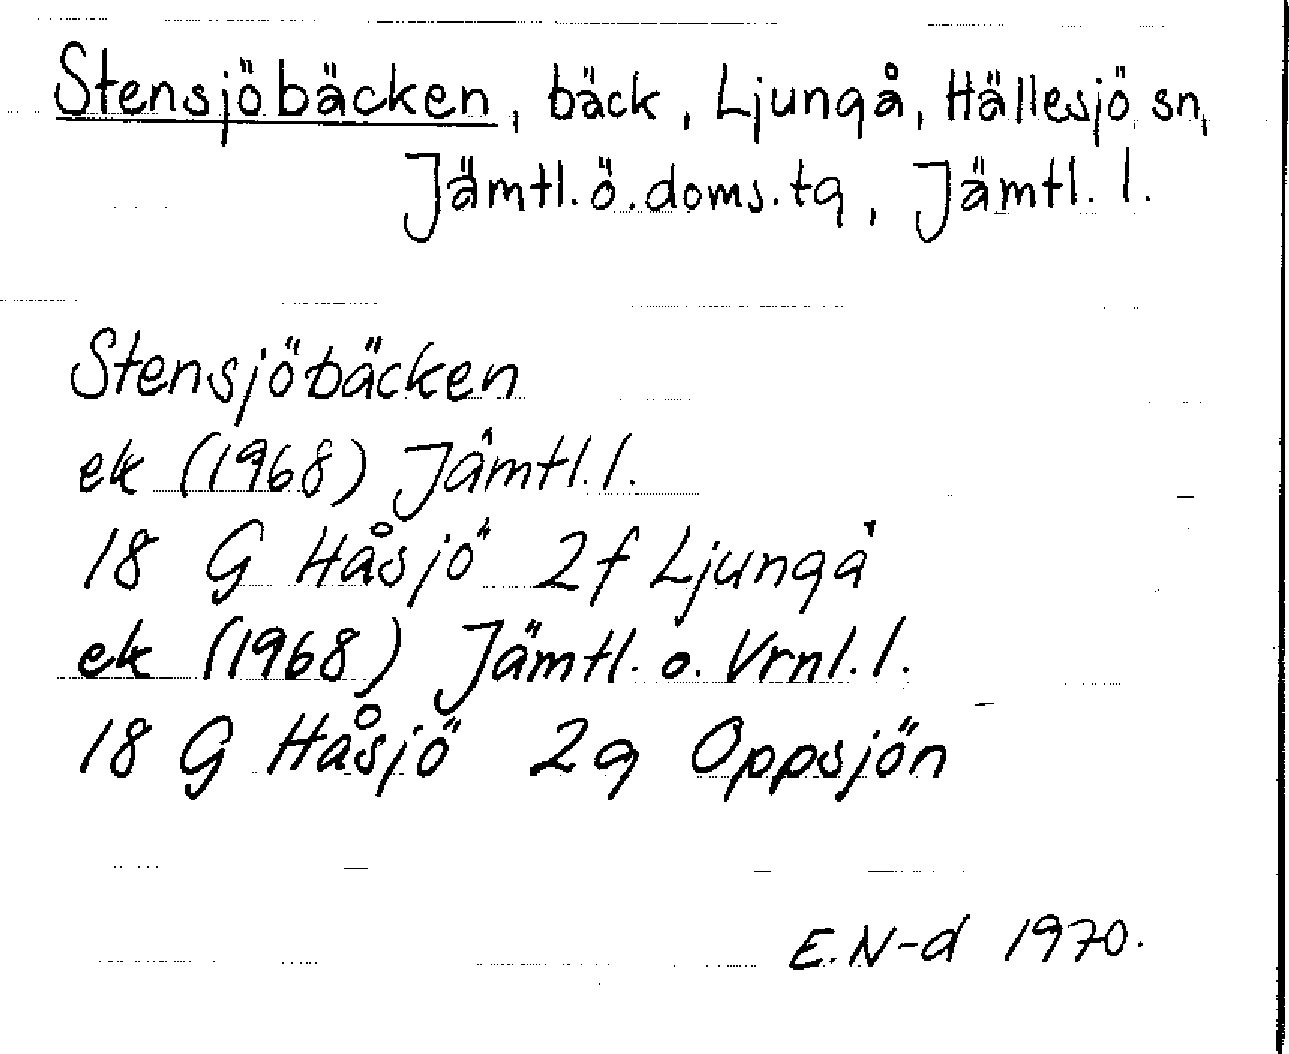 Stensjöbäcken, bäck, Ljungå, Hällesjö sn,
Jämtl. ö. doms. tg, Jämtl. l.
Stensjöbäcken
ek (1968) Jämtl. l.
18 G Håsjö 2f Ljungå
ek (1968) Jämtl. o. Vrnl. l.
18 G Håsjö 2g Oppsjön
E. N-d 1970.